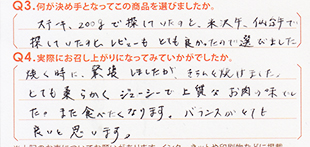 Q3.何が決め手となってこの商品を選びましたか。
ステーキ、200gで探していたのと、米沢牛、仙台牛で
探していたのと、レビューもとても良かったので選びました
Q4.実際にお召し上がりになってみていかがでしたか。
焼く時に、緊張しましたが、きちんと焼けました。
とても柔らかくジューシーで上質なお肉の味でし
た。また食べたくなります。バランスがとても
良いと思います。